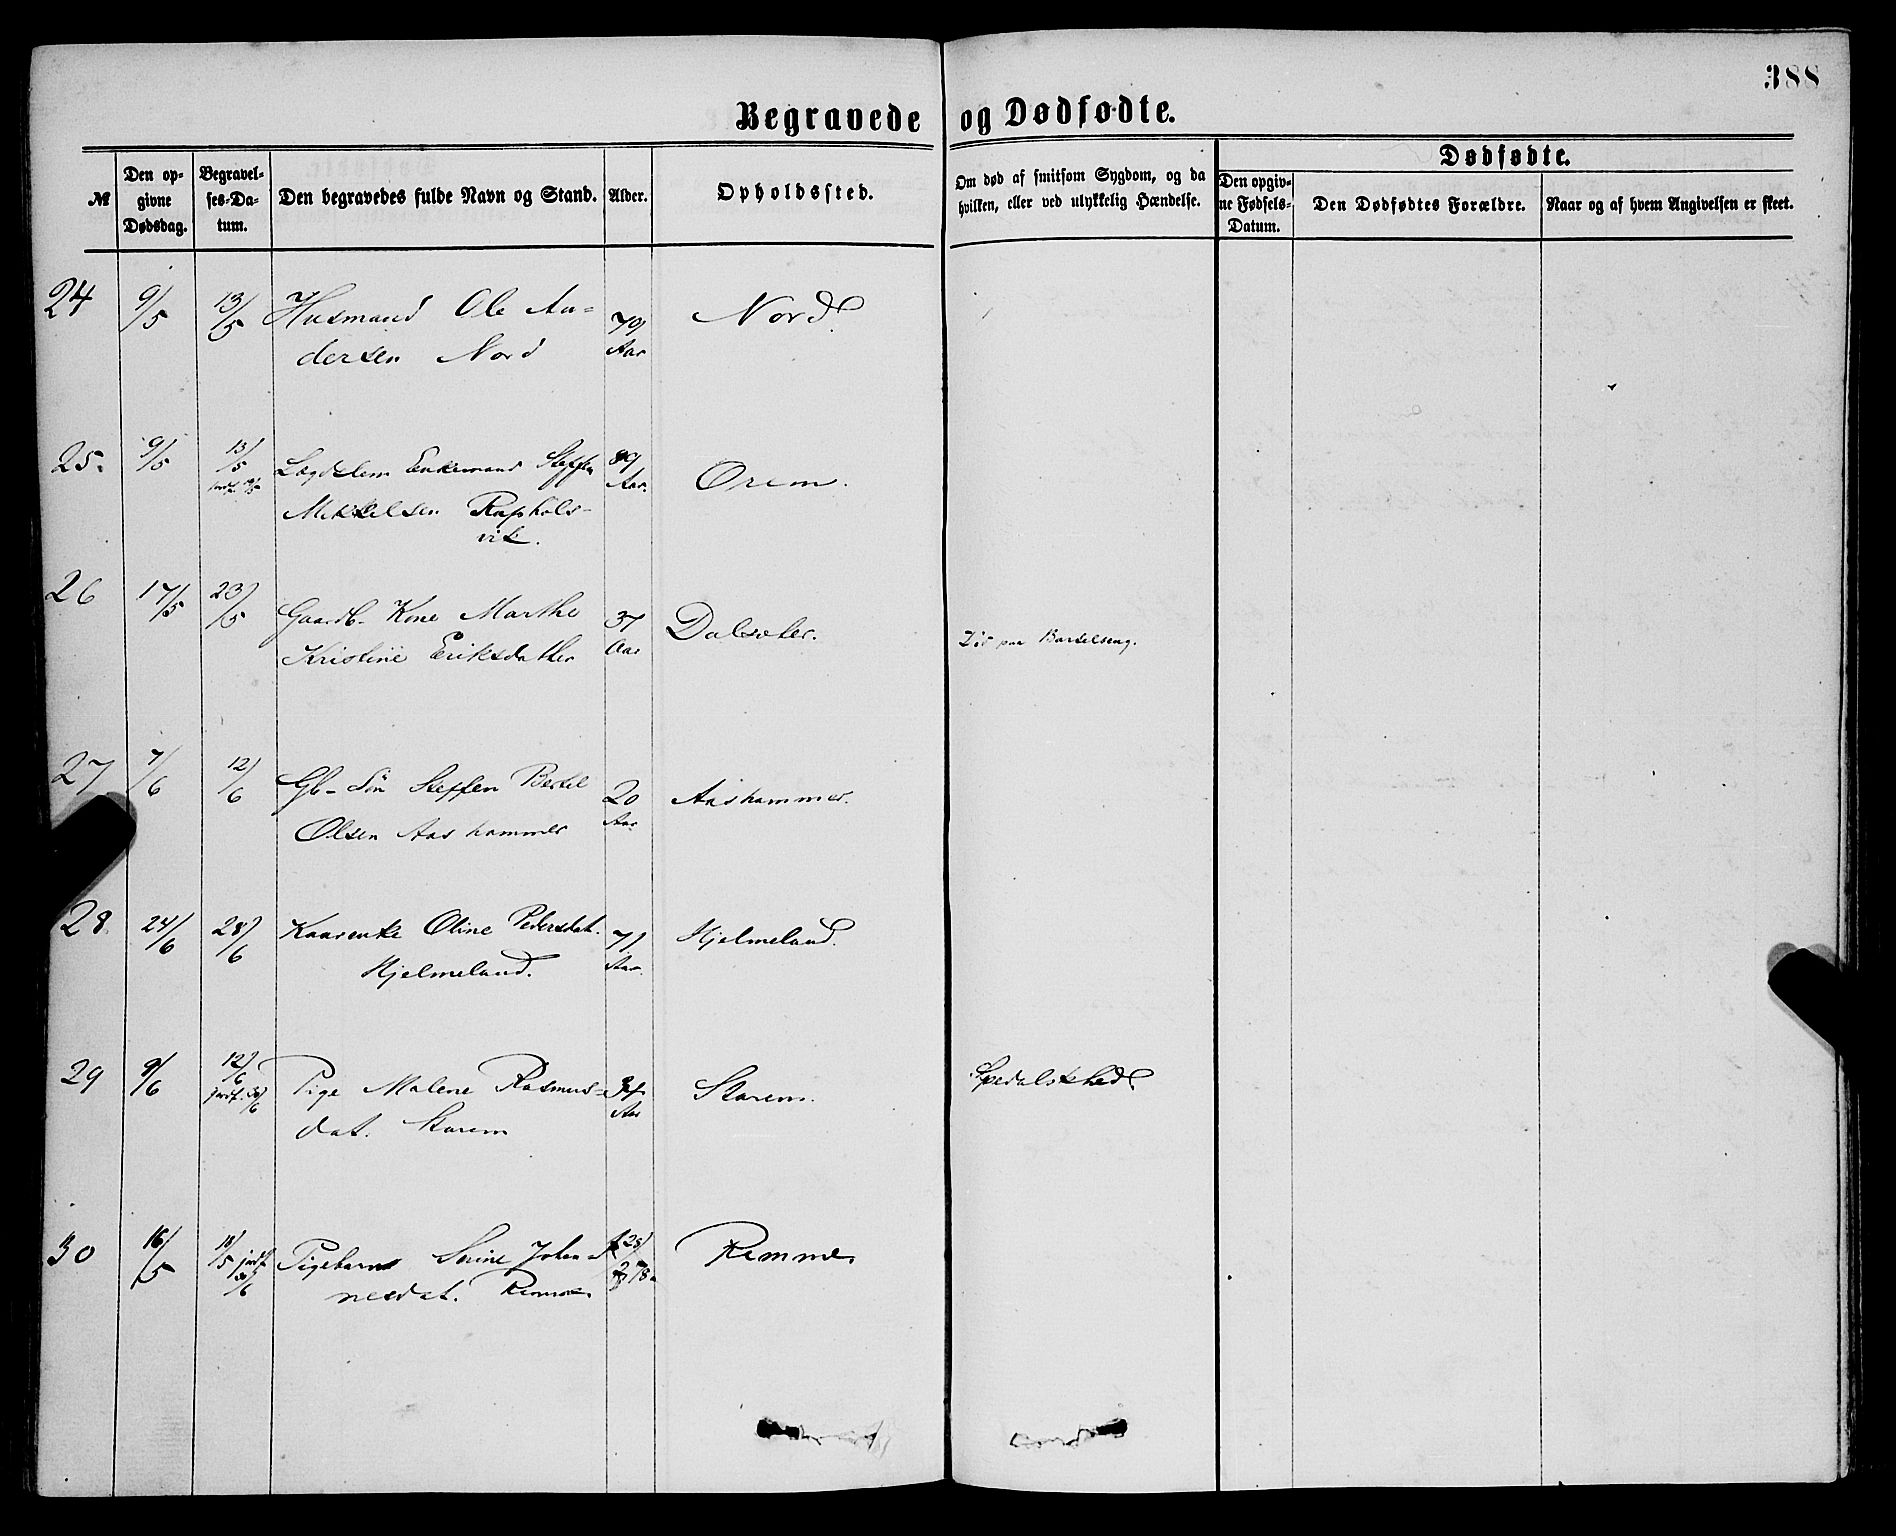 388
Begravede og Dødfødte.
№
Den opgivne Dødsdag.
Begravelses-Datum.
Den begravedes fulde Navn og Stand.
Alder.
Opholdssted.
Om død af smitsom Sygdom, og da
hvilken, eller ved ulykkelig Hændelse.
Dødfødte.
Den opgivne Fødsels-Datum.
Den Dødfødtes Forældre.
Naar og af hvem Angivelsen er skeet.
24 9/5 13/5 Husmand Ole An- 79 Nord.
dersen Nord Aar
25. 9/5 13/5 Lægdslem Enkemand Steffen 89 Orem.
Mikkelsen Raphols- Aar.
vik.
26 17/5 23/5 Gaardb. Kone Marthe 37 Dalsæter.
Kristine Eriksdatter Aar Død paa Barselseng.
27 7/6 12/6 Gb- Søn Steffen Bertel 20 Aashammer.
Olsen Aashammer Aar
28 24/6 28/6 Kaarenke Oline Pedersdat. 71 Hjelmeland.
Hjelmeland. Aar.
29 9/6 12/6 Pige Malene Rasmus- Starem. Spedalskhed
dat. Starem Aar
30 16/5 18/5 Pigebarn Johan- Remme.
nesdat. Remme.